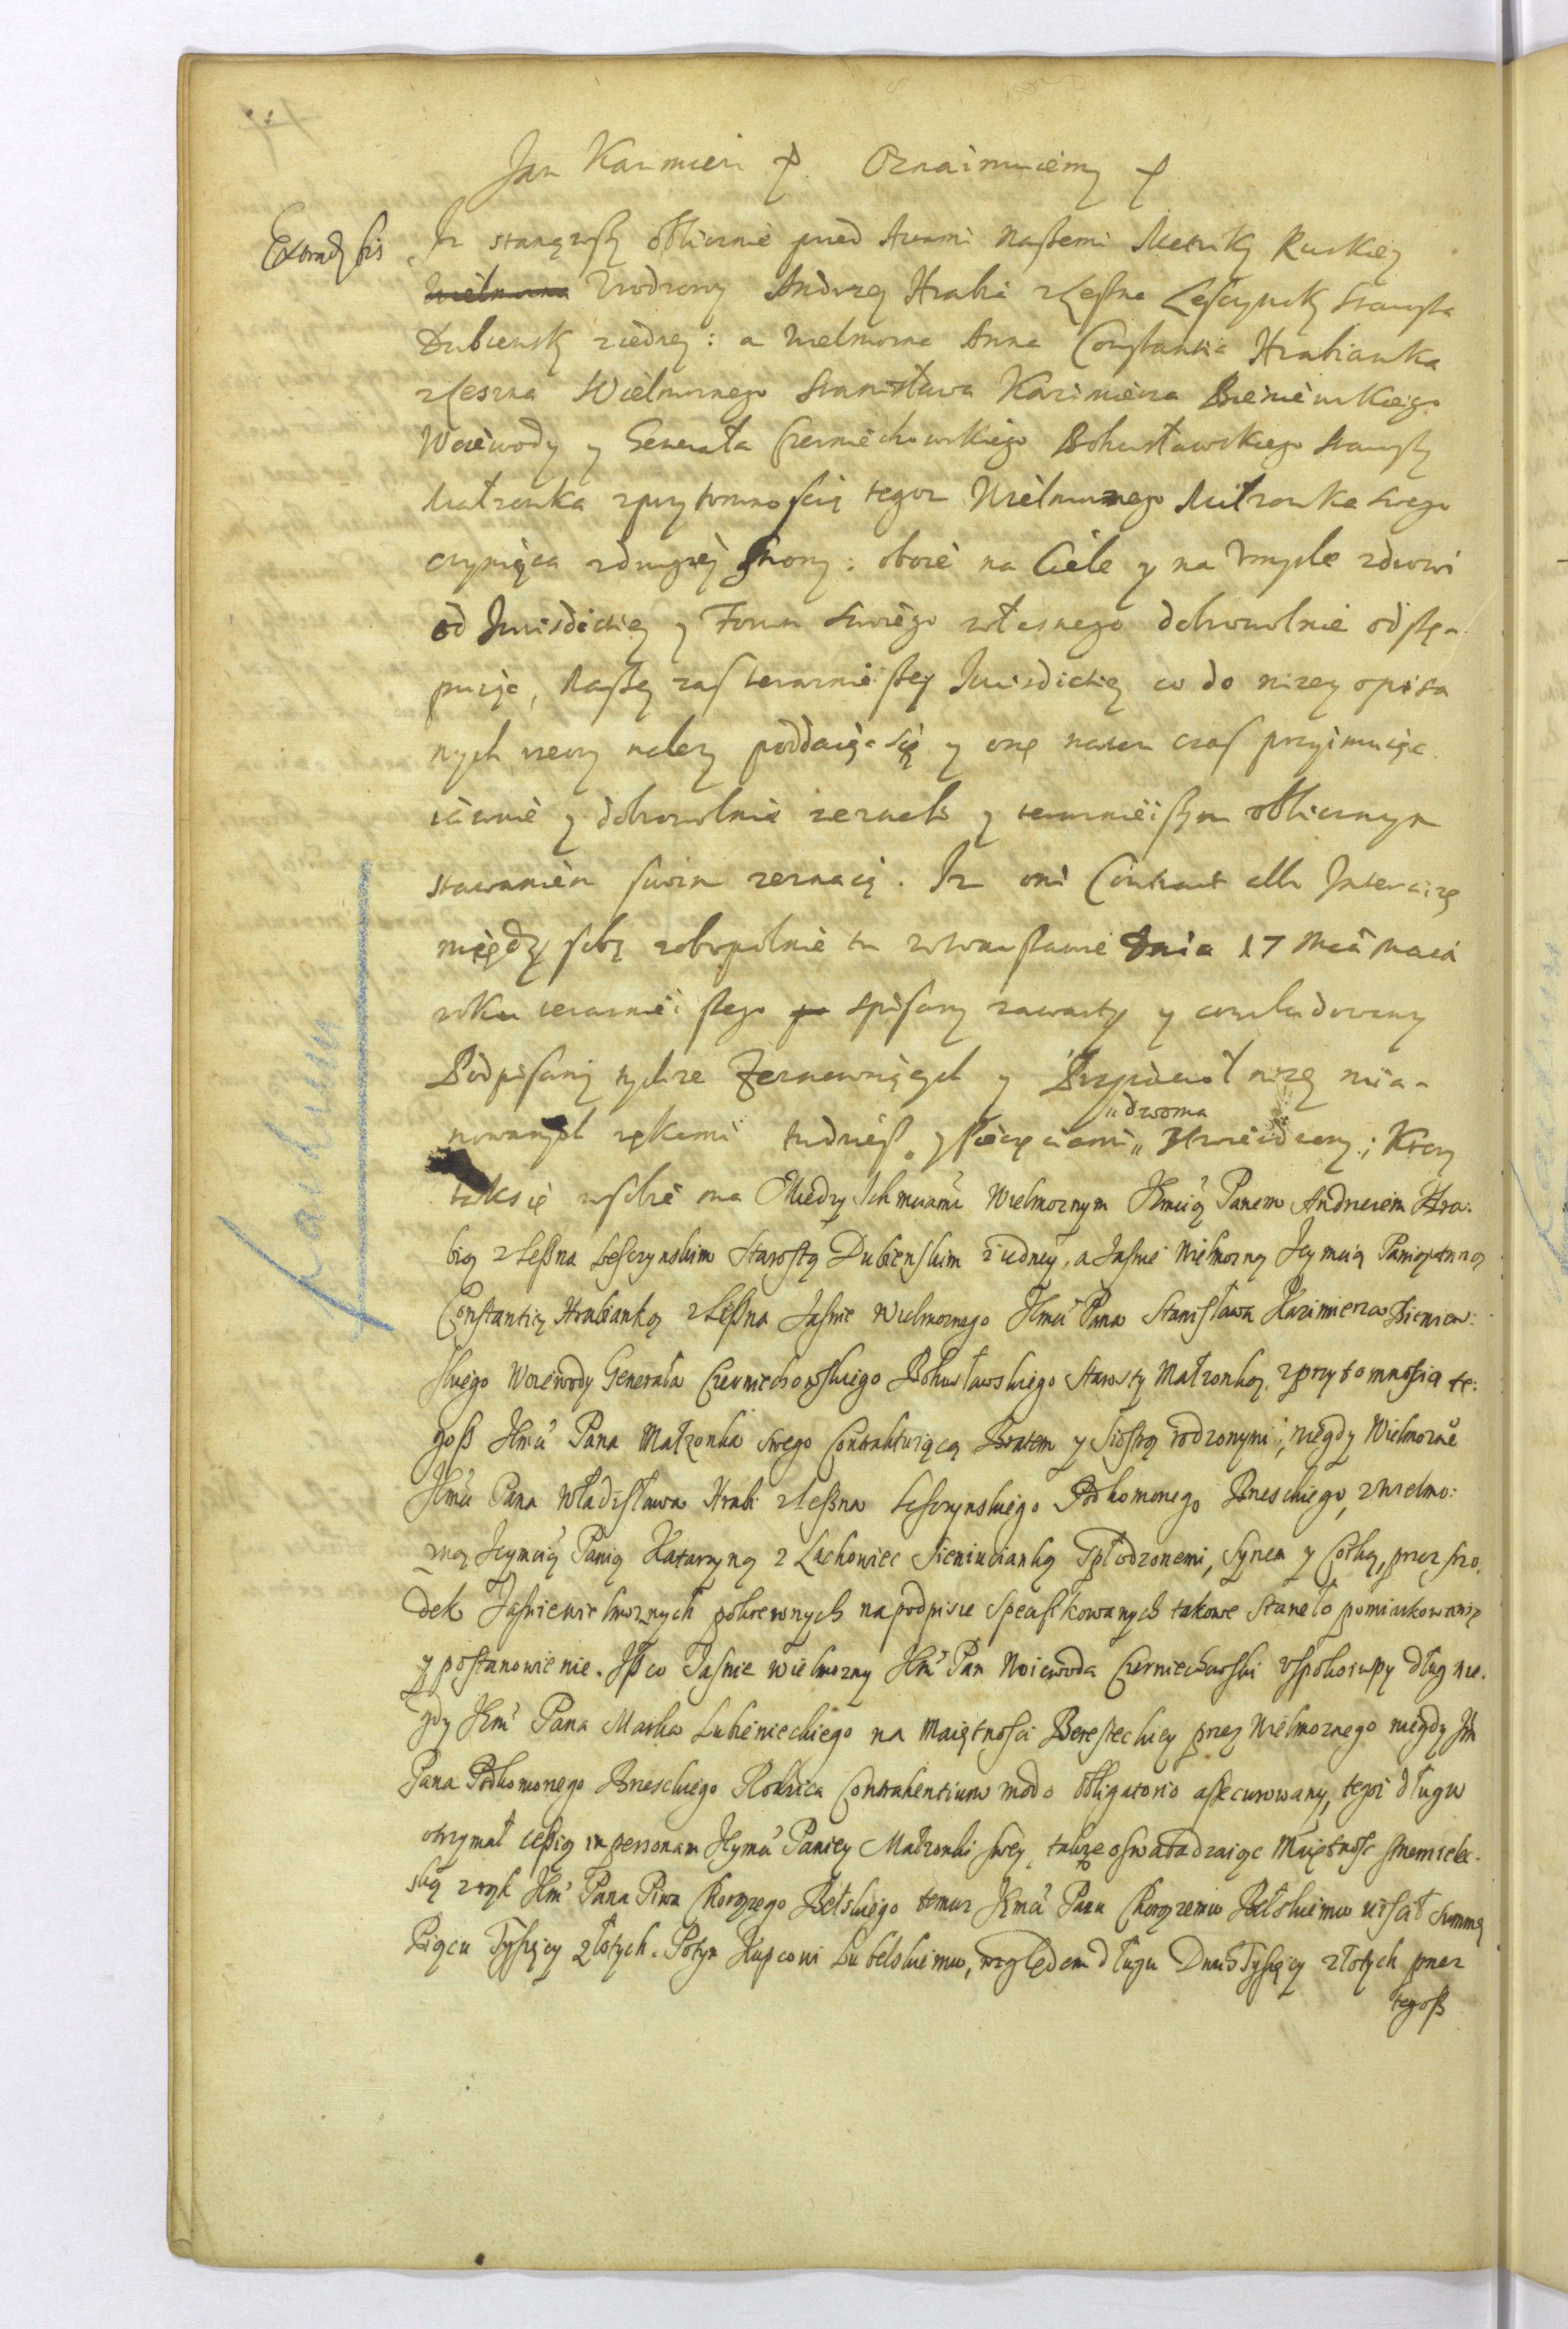 Jan Kazimierz Oznaimuiemy
Extradit bis
Iz stanąwszy oblicznie przed Aktami Naszemi Metryky Ruskiey
Wielmozna Urodzony Andrzey Hrabia zLeszna Lesczynsky Starosta
Dubiensky ziedney: a Wielmozna Anna Constantia Hrabianka
zLeszna Wielmoznego Stanisława Kazimierza Bieniewskiego
Woiewody y Generała Czerniechowskiego Bohusławskiego Starosty
Małzonka zprzytomnoscią tegoz Wielmoznego Małzonka swego
czyniąca zdrugiey strony: oboie na Ciele y na Umysle zdrowi
od Jurisdictiey y Forum swoiego własnego dobrowolnie odstę-
puiąc, Naszey zas terazniejszey Jurisdictiey co do nizey opisa
nych rzeczy nalezy poddaiąc się y onę naten czas przyimuiąc
iawnie y dobrowolnie zeznali y teraznieiszym oblicznym
stawaniem swoim zeznaią. Iz oni Contract albo Intercizę
między sobą zobopolnie tu wWarszawie Dnia 17 Mca Maia
roku teraznieiszego spisany zawarty y concludowany
Podpisany tychze Zeznawaiących y Przyiacioł nizey mia-
nowanych rękami tudziesz y pieczęciami „dwoma„ ztwierdzony; Ktory
taksię wsobie ma Miedzy Ichmciami Wielmoznym Jmcią Panem Andrzeiem Hra:
bią zLeszna Lesczynskim Starostą Dubienskim ziedney, a Jasnie Wielmozną Jeymcią Panią Anną
Constantią Hrabianką zLeszna Jasnie Wielmoznego Jmci Pana Stanisława Kazimierza Bieniew:
skiego Woiewody Generała Czerniechowskiego Bohusławskiego Starosty Małzonką, zprzytomnoscią te:
gosz Jmci Pana Małzonka swego Contraktuiącą Bratem y Siostrą rodzonymi, niegdy Wielmozne
Jmci Pana Władisława Hrabi zLeszna Lesczynskiego Podkomorzego Brzeskiego, zWielmo:
zną Jeymcią Panią Katarzyną z Lachowiec Sieniucianką Spłodzonemi, Synem y Corką, przez srzo.
dek Jasniewielmoznych pokrewnych napodpisie specifikowanych takowe stanęło pomiarkowanie
y postanowienie. Iszco Jasnie Wielmozny Jmć Pan Woiewoda Czerniechowski uspokoiwszy dług nie.
gdy Jmci Pana Marka Lubienieckiego na Maiętnosci Beresteckiey przez Wielmoznego niegdy Jm
Pana Podkomorzego Brzeskiego Rodzica Contrahentium modo obligatorio assecurowany, tegoz długu
otrzymał cessią in personam Jeymci Paniey Małzonki swey, takze oswabadzaiąc Maiętnosc
ską zrąk Jmci Pana Piwa Chorązego Bełskiego temuz Jmci Panu Chorązemu Bełskiemu uiscił Summę
Pięciu Tysięcy złotych. Potym Kupcowi Lubelskiemu, względem długu Dwuch Tysięcy złotych przez
tegosz
vacluum